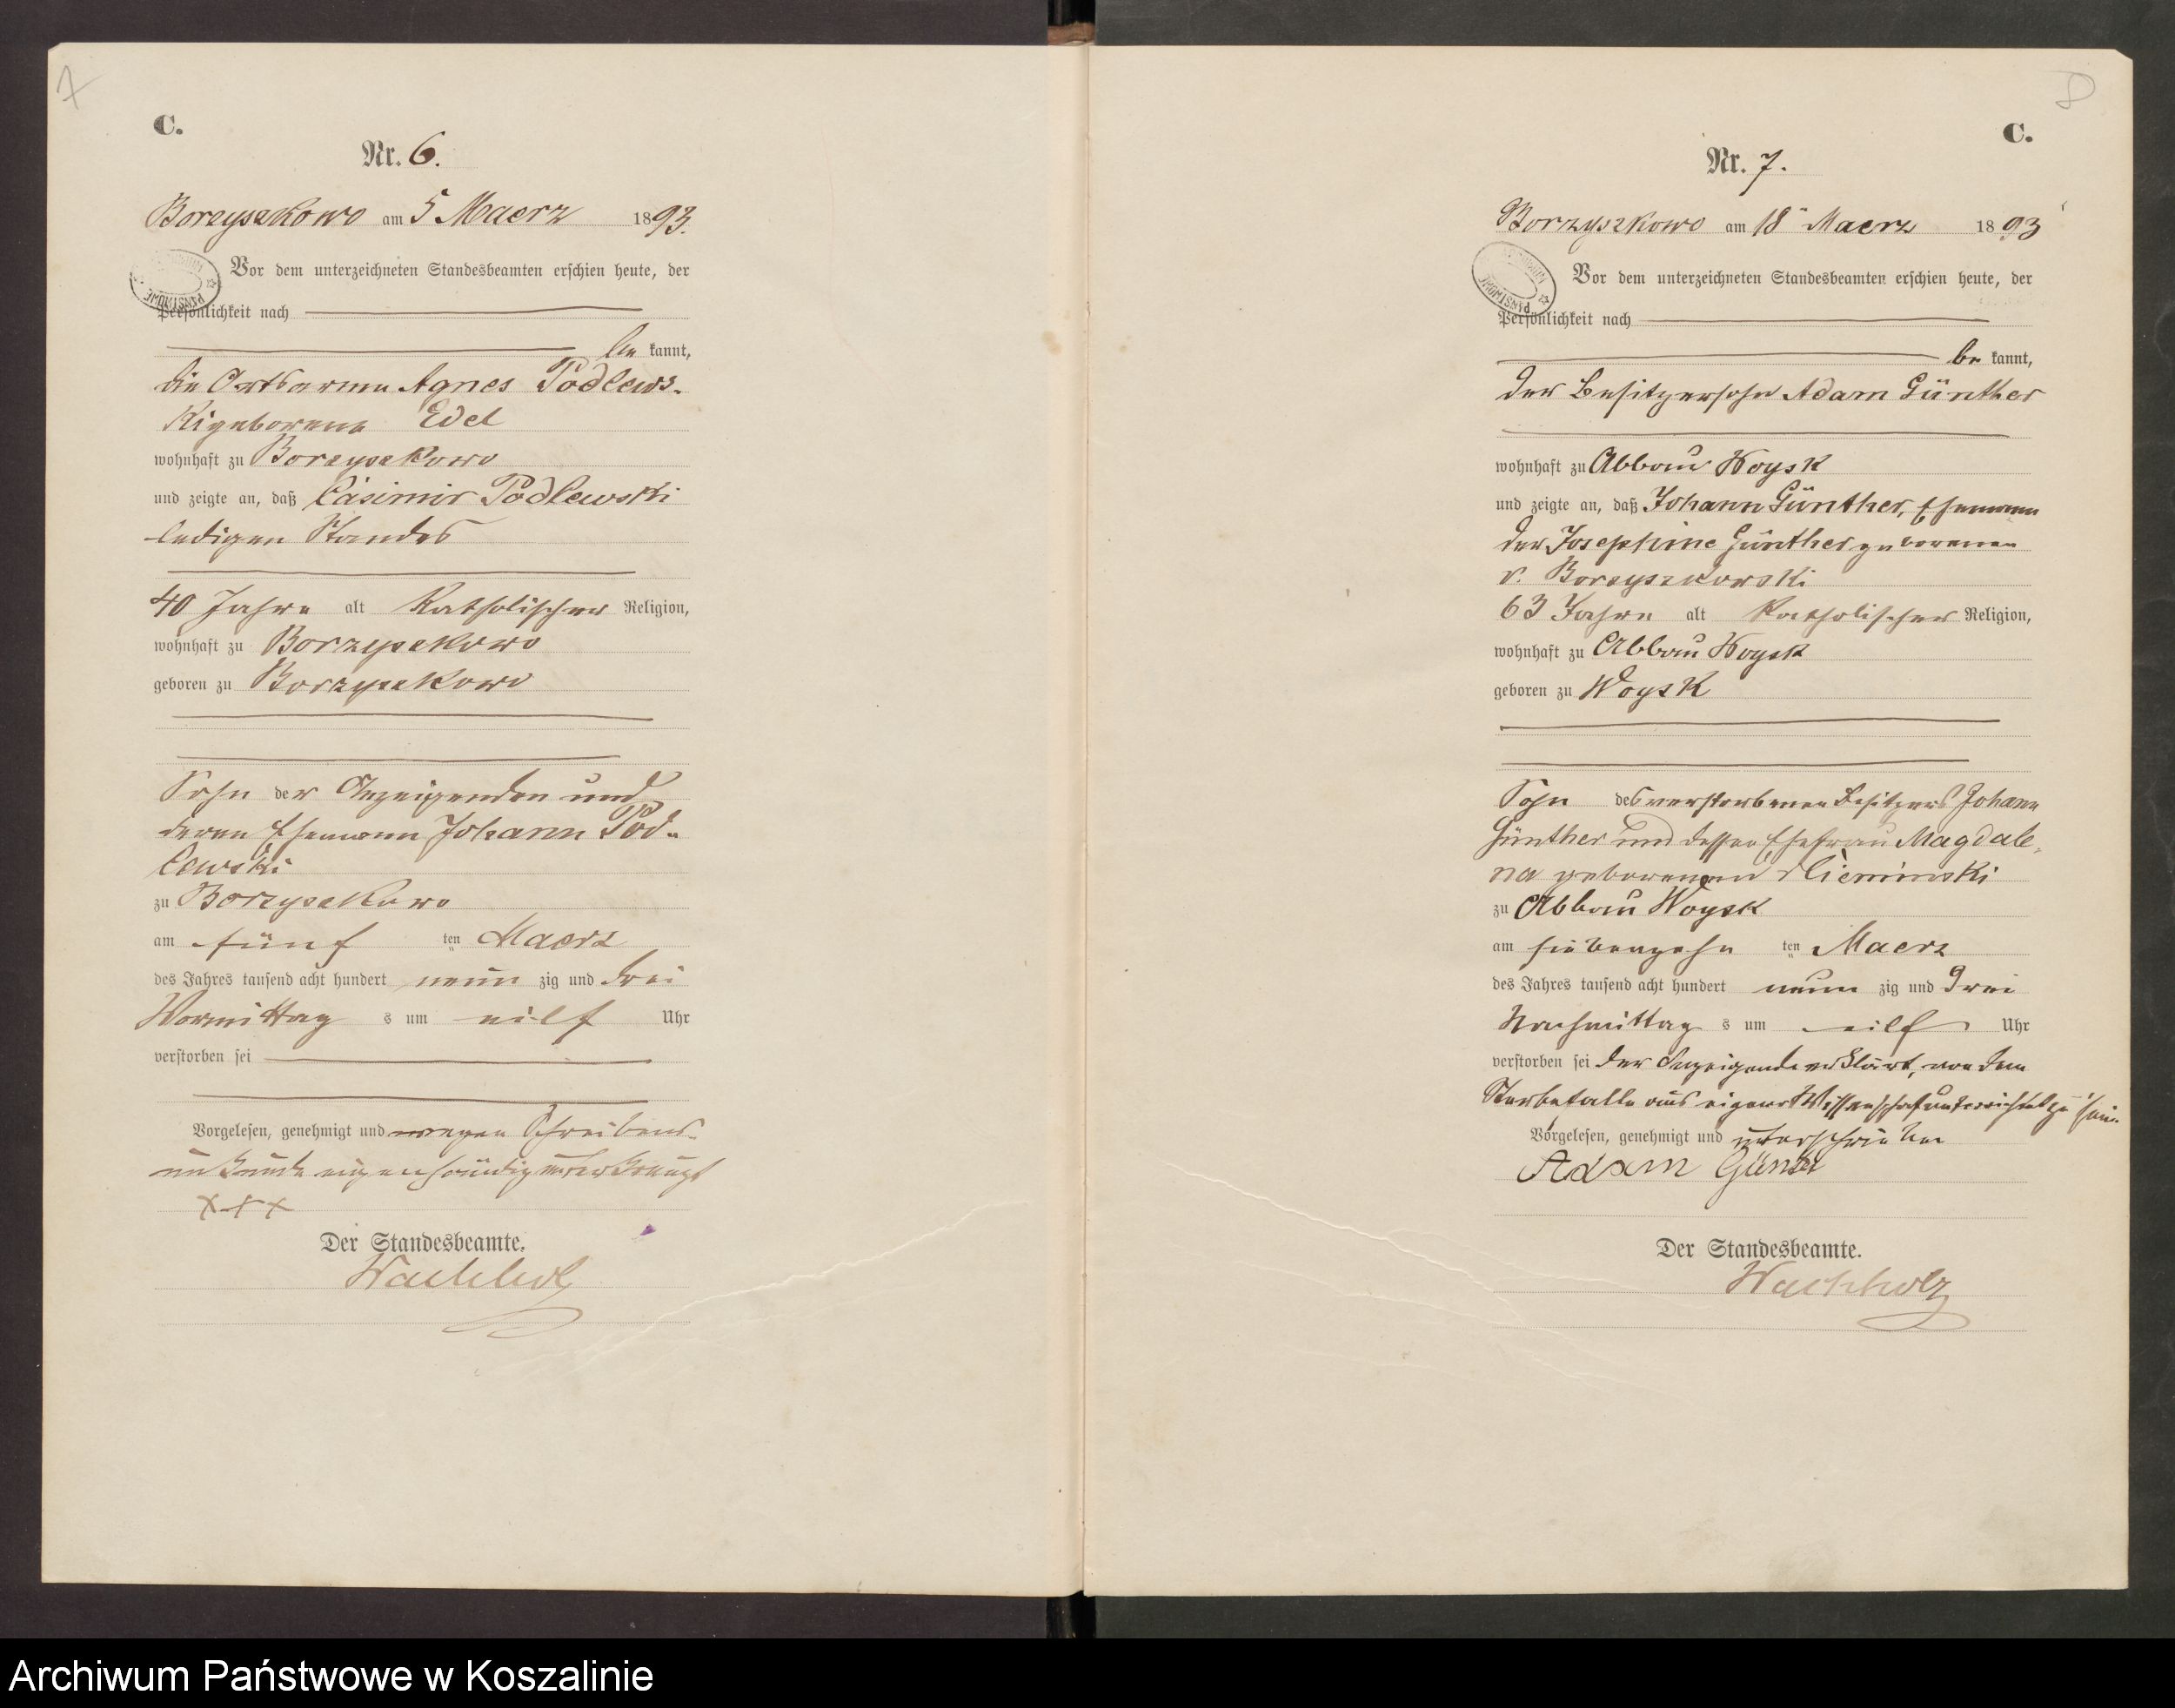 7
C.
Nr. 6.
Borzyszkowo am 5 Maerz 1893.
Vor dem unterzeichneten Standesbeamten erschien heute, der
Persönlichkeit nach
be kannt,
die Ortsarme Agnes Podlews-
ki geborene Edel
wohnhaft zu Borzyszkowo
und zeigte an, daß Casimir Podlewski
ledigen Standes
40 Jahre alt Katholischer Religion,
wohnhaft zu Borzyszkowo
geboren zu Borzyszkowo
Sohn der Anzeigenden und
deren Ehemann Johann Pod-
lewski
zu Borzyszkowo
am fünf ten Maerz
des Jahres tausend acht hundert neun zig und drei
Vormittag s um eilf Uhr
verstorben sei
Vorgelesen, genehmigt und wegen Schreibens-
unkunde eigenhändig unterkreuzt
XXX
Der Standesbeamte.
Wachholz
8
C.
Nr. 7.
Borzyszkowo am 18 Maerz 1893
Vor dem unterzeichneten Standesbeamten erschien heute, der
Persönlichkeit nach
be kannt,
der Besitzersohn Adam Günther
wohnhaft zu Abbau Woysk
und zeigte an, daß Johann Günther, Ehemann
der Josephine Günther geborenen
v. Borzyszkowski
63 Jahre alt Katholischer Religion,
wohnhaft zu Abbau Woysk
geboren zu Woysk
Sohn des verstorbenen Besitzers Johann
Günther und dessen Ehefrau Magdale-
na geborenen Cieminski
zu Abbau Woysk
am siebenzehn ten Maerz
des Jahres tausend acht hundert neun zig und drei
Nachmittag s um eilf Uhr
verstorben sei der Anzeigende erklärt, von dem
Sterbefalle aus eigener Wissenschaft unterrichtet zu sein.
Vorgelesen, genehmigt und unterschrieben
Adam Günter
Der Standesbeamte.
Wachholz
Archiwum Państwowe w Koszalinie